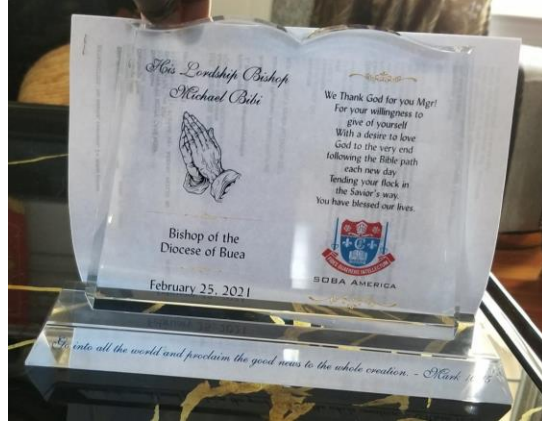 His Lordship Bishop
Michael Bibi
Bishop of the
Diocese of Buea
February 25, 2021
We Thank God for you Mgr!
For your willingness to
give of yourself
With a desire to love
God to the very end
following the Bible path
each new day
Tending your flock in
the Savior's way.
You have blessed our lives.
SOBA AMERICA
Go into all the world and proclaim the good news to the whole creation. - Mark